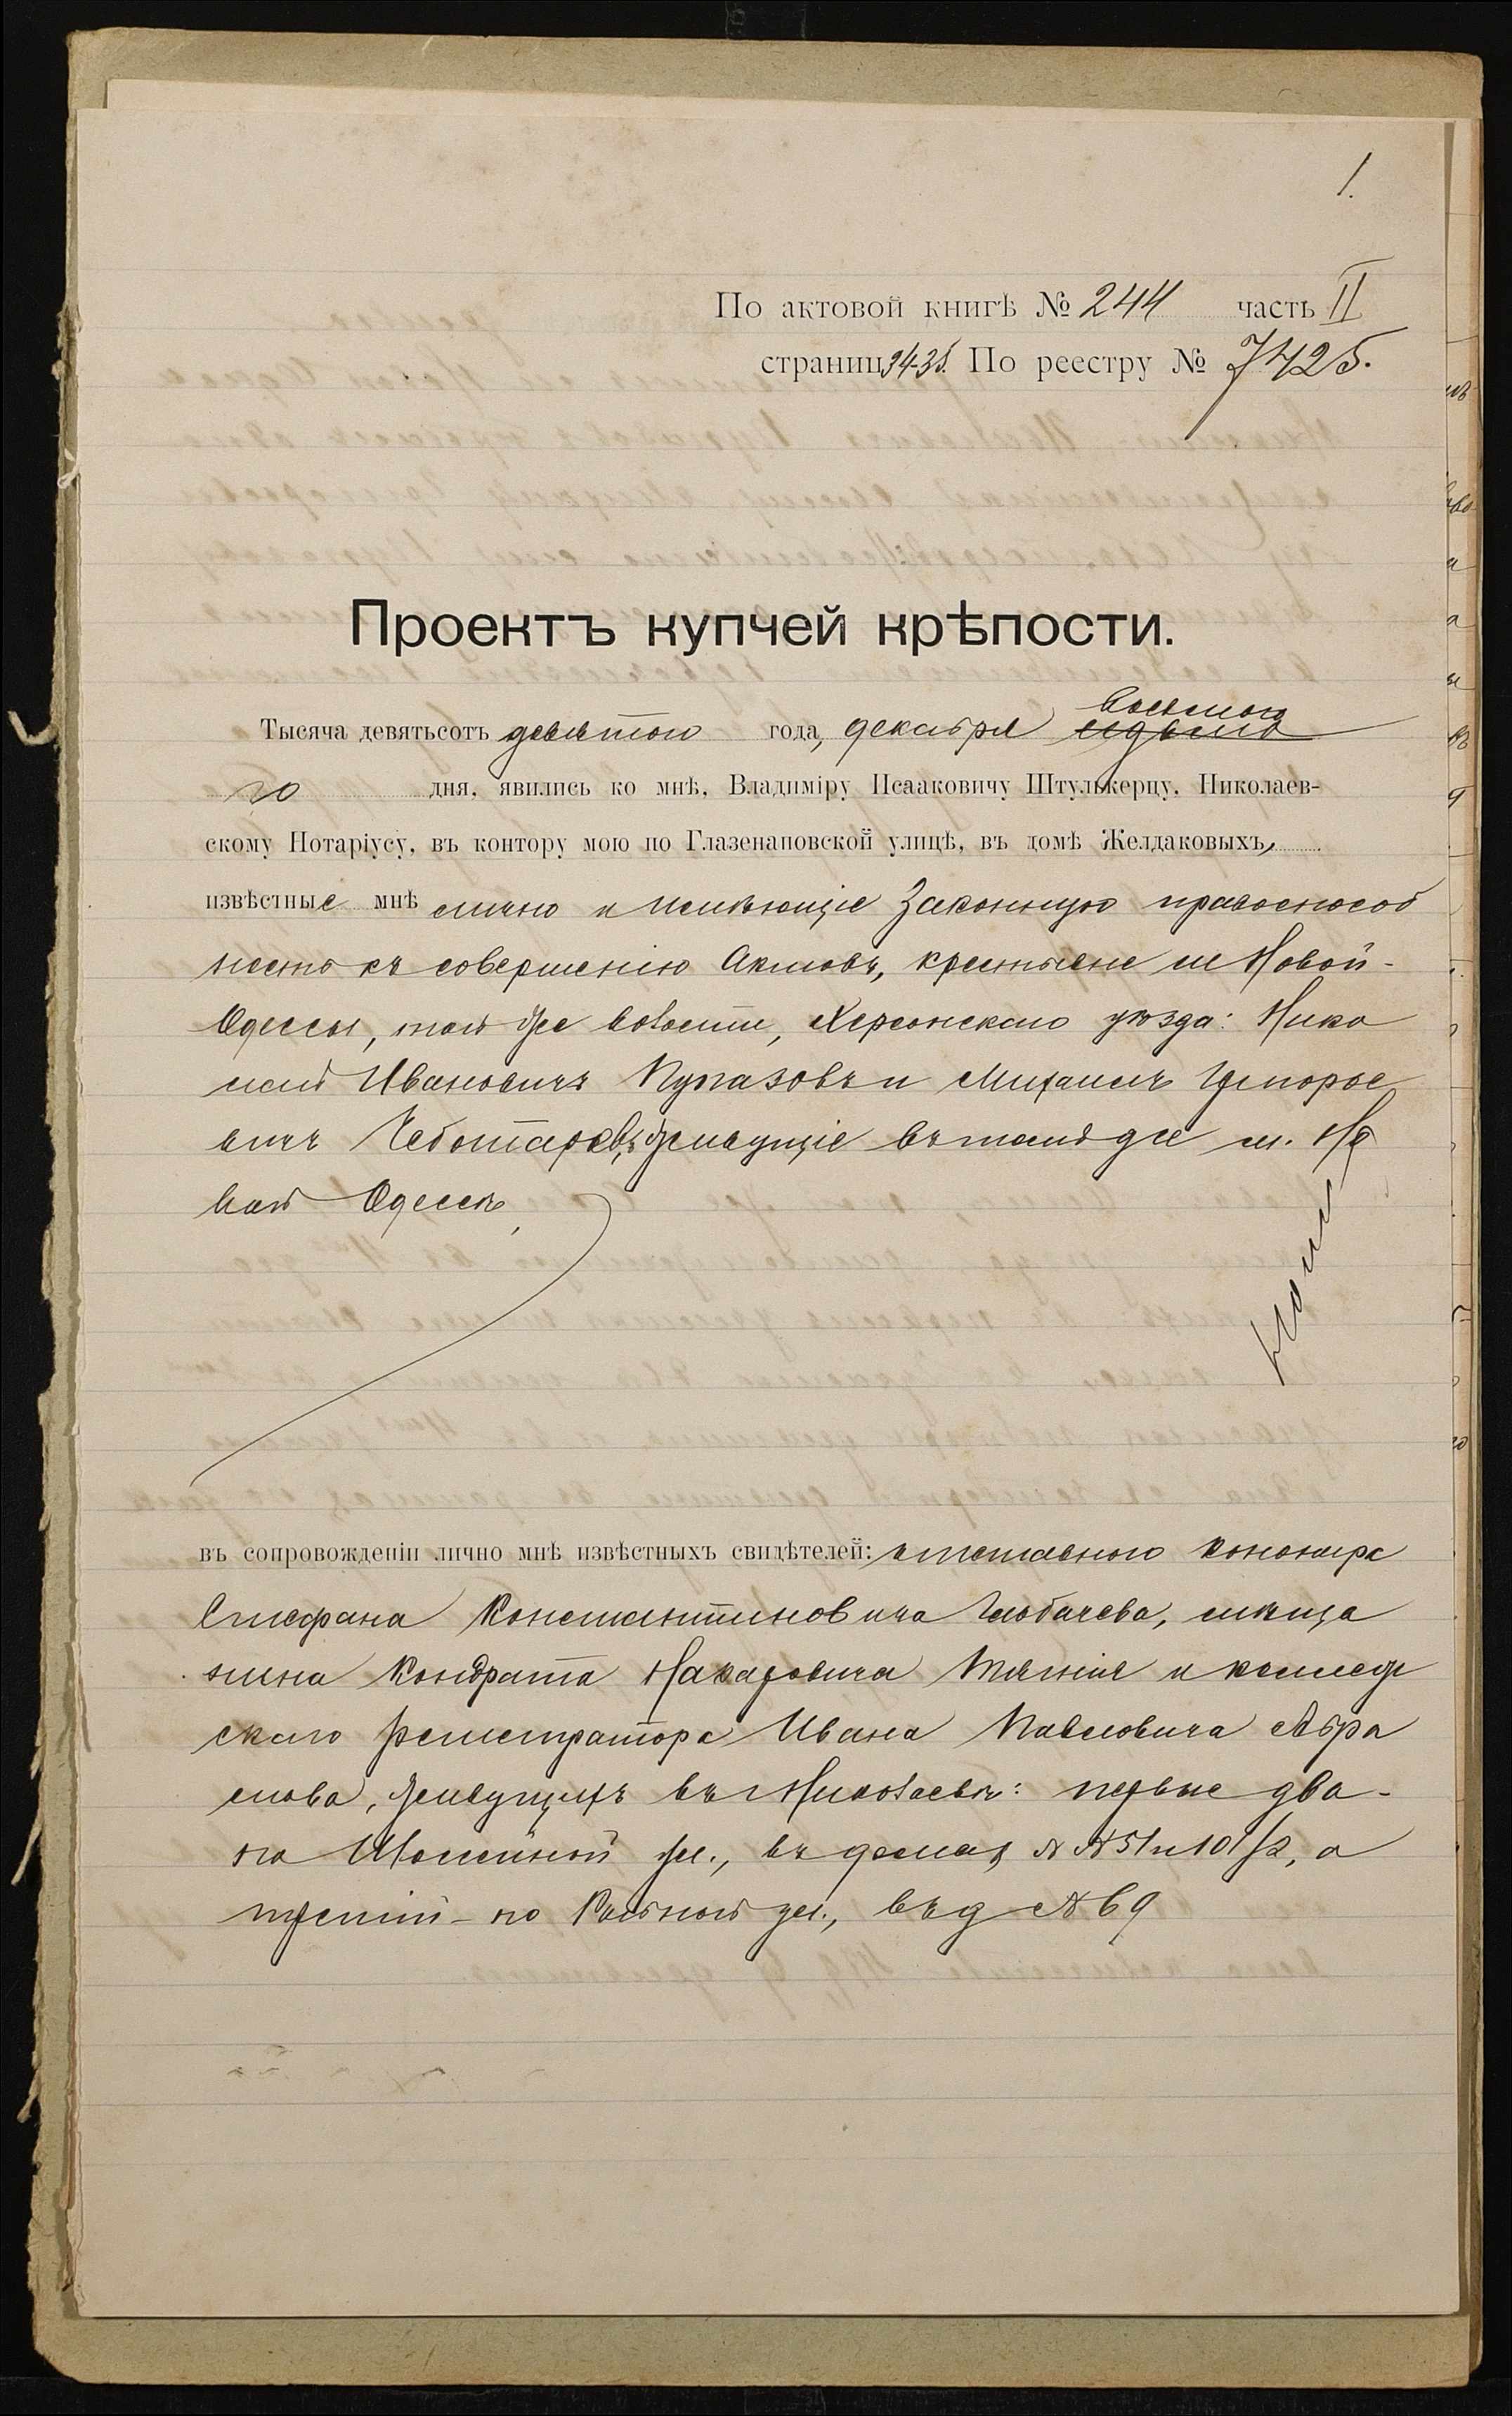 1.
По актовой книгѣ № 244 часть II
страниц 34-35. По реестру № 7425.
Проектъ купчей крѣпости.
восьмого
Тысяча девятьсотъ девятого года, декабря седьмо
го дня, явились ко мнѣ, Владиміру Исааковичу Штулькерцу, Николаев-
скому Нотаріусу, въ контору мою по Глазенаповской улицѣ, въ домѣ Желдаковыхъ,
извѣстные мнѣ лично и имѣющіе законную правоспособ
ность къ совершенію актовъ, крестьяне м Новой-
Одессы, той же волости, Херсонскаго уѣзда: Нико
лай Ивановичъ Пугазовъ и Михаилъ Григорье
вичъ Чеботаревъ, живущіе въ той же м. Но
вой Одессѣ,
въ сопровожденіи лично мнѣ извѣстныхъ свидѣтелей: отставного канонира
Стефана Константиновича Глобачева, мѣща
нина Кондрата Макаровича и коллеж
скаго регистратора Ивана Павловича Абра
мова, живущихъ въ Николаевѣ: первые два-
по ул., въ домах № № 51 и 101/2, а
третій - по ул., въ д № 69